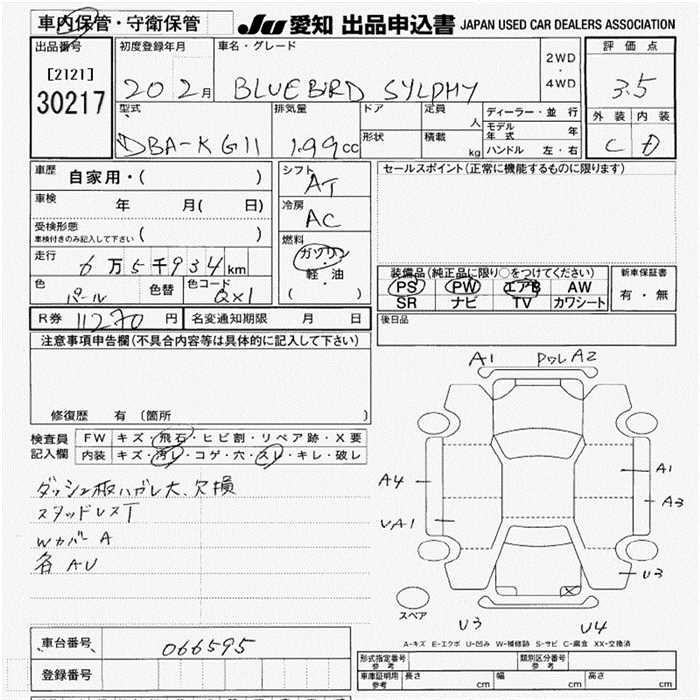 車内保管・守衛保管 JU 愛知 出品申込書 JAPAN USED CAR DEALERS ASSOCIATION
出品番号 初度登録年月 車名・グレード 評価点
[2121] 2WD・4WD
30217 20 2月 BLUEBIRD SYLPHY 3.5
型式 排気量 ドア 定員 人 ディーラー・並行 外装 内装
モデル年式 年
DBA-KG11 1.99cc 形状 積載 kg ハンドル 左・右 C D
車歴 自家用・( ) シフト AT セールスポイント(正常に機能するものに限ります)
車検 年 月( 日) 冷房 AC
受検形態 ( )
車検付きのみ記入して下さい
燃料
走行 6万5千934km ガソリン・軽・油 装備品(純正品に限り○をつけてください) 新車保証書
色 パール 色替 色コード QX1 ( ) PS PW エアB AW 有・無
SR ナビ TV カワシート
R券 11270円 名変通知期限 月 日 後日品
注意事項申告欄(不具合内容等は具体的に記入して下さい)
A1 PワレA2
修復歴 有 (箇所 )
検査員 FW キズ・飛石・ヒビ割・リペア跡・X要
記入欄 内装 キズ・汚レ・コゲ・穴・スレ・キレ・破レ
A1
A4 A3
ダッシュ板ハガレ大、欠損
スタッドレスT
A1
WカバーA
各AU
U3
スペア
U3 U4
A-キズ E-エクボ U-凹み W-補修跡 S-サビ C-腐食 XX-交換済
車台番号 066595
形式指定番号 参考 類別区分番号 参考
登録番号 車庫証明用 参考 長さ cm 幅 cm 高さ cm